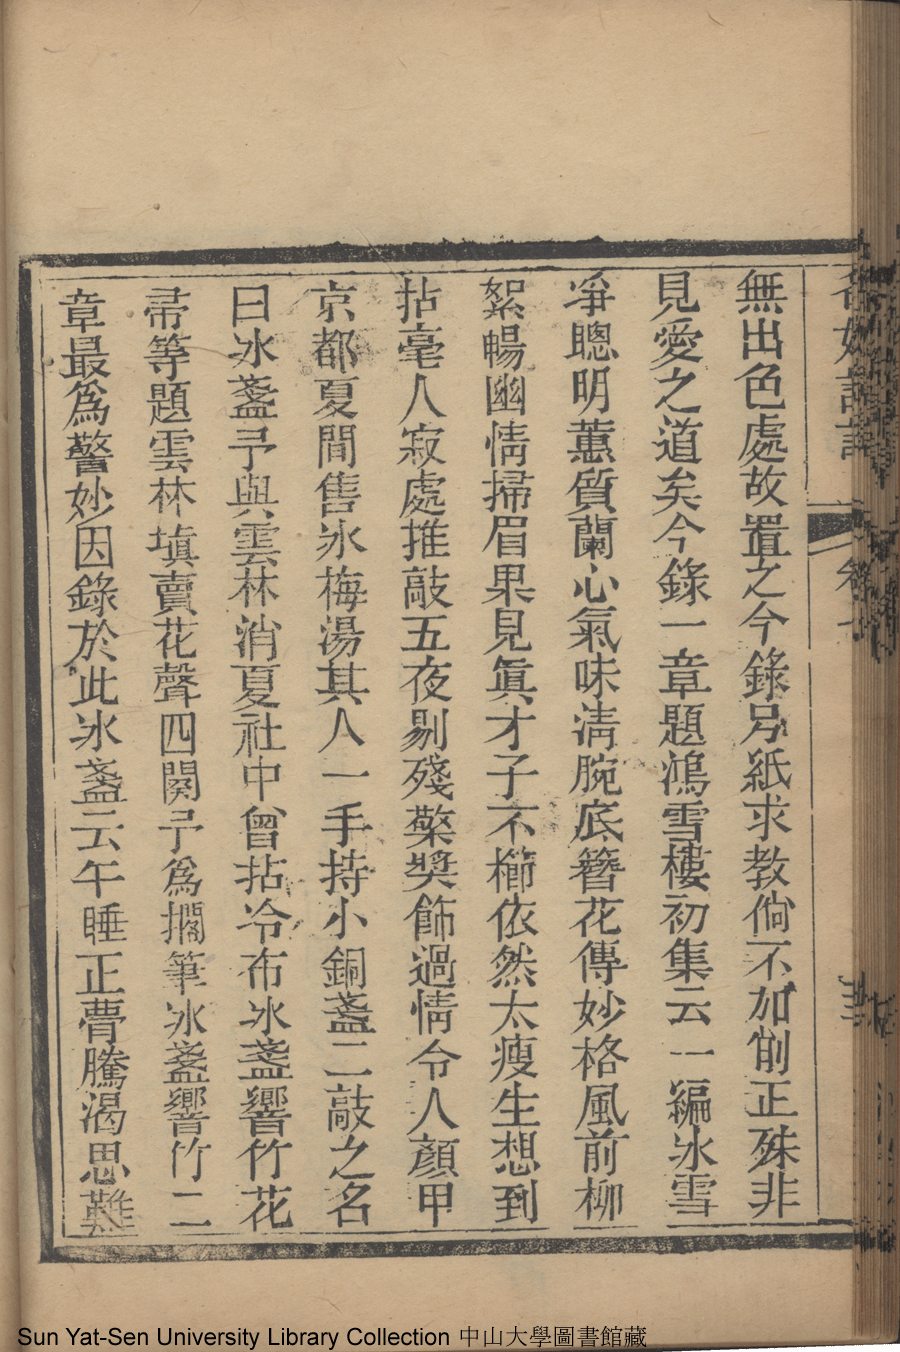 名媛詩話 卷七
無出色處故置之今錄另紙求教倘不加削正殊非
見愛之道矣今錄一章題鴻雪樓初集云一編氷雪
淨聰明蕙質蘭心氣味淸腕底簪花傳妙格風前柳
絮暢幽情掃眉果見眞才子不櫛依然太瘦生想到
拈毫人寂處推敲五夜剔殘檠奬飾過情令人顏甲
京都夏間售氷梅湯其人一手持小銅盞二敲之名
曰氷盞予與雲林消夏社中曾拈冷布氷盞響竹花
帚等題雲林塡賣花聲四闋予爲擱筆氷盞響竹二
章最爲警妙因錄於此氷盞云午睡正瞢騰渴思難
Sun Yat-Sen University Library Collection 中山大學圖書館藏